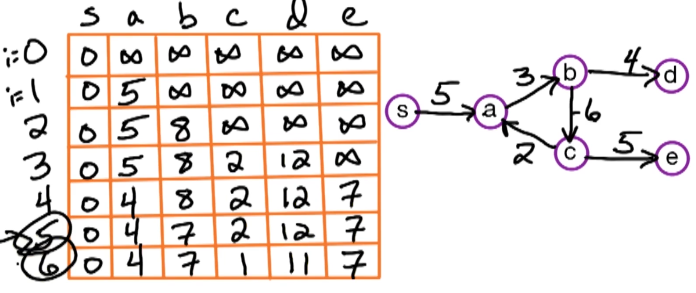 s a b c d e
i=0 0 ∞ ∞ ∞ ∞ ∞
i=1 0 5 ∞ ∞ ∞ ∞
2 0 5 8 ∞ ∞ ∞
3 0 5 8 2 12 ∞
4 0 4 8 2 12 7
5 0 4 7 2 12 7
6 0 4 7 1 11 7
s 5 a 3 b 4 d
-6
2 c 5 e